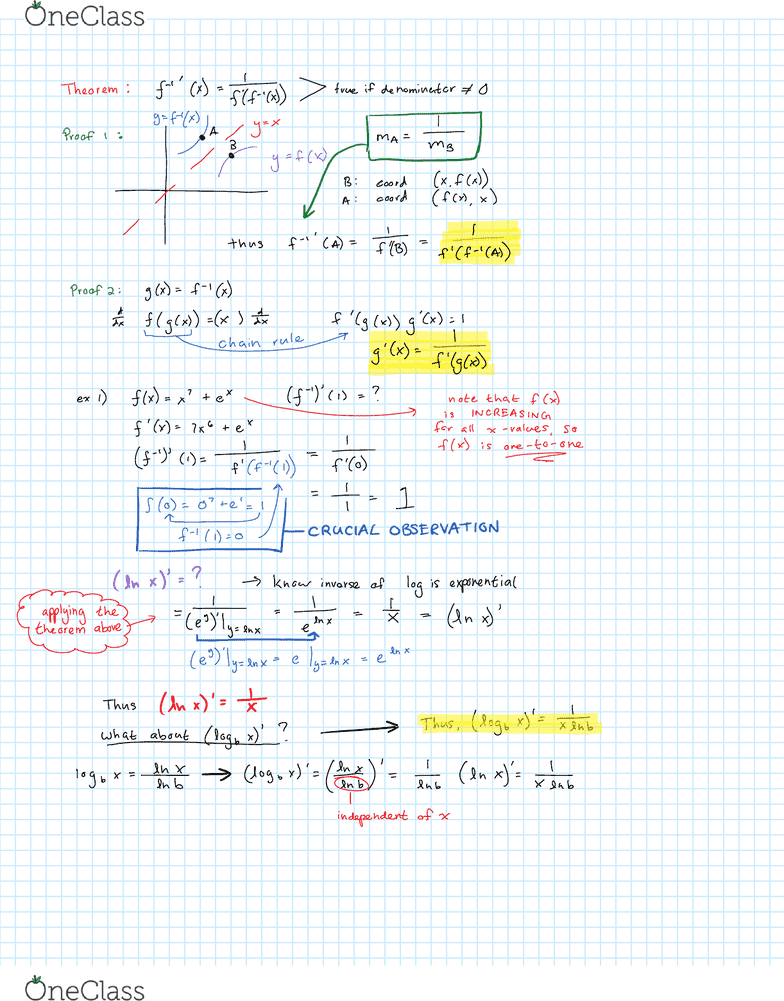 OneClass
Theorem: f⁻¹'(x) = 1/f'(f⁻¹(x)) > true if denominator ≠ 0
Proof 1:
y=f⁻¹(x)
A
y=x
B
y=f(x)
m_A = 1/m_B
B: coord (x, f(x))
A: coord (f(x), x)
thus f⁻¹'(A) = 1/f'(B) = 1/f'(f⁻¹(A))
Proof 2: g(x) = f⁻¹(x)
d/dx f(g(x)) = (x) d/dx
chain rule
f'(g(x)) g'(x) = 1
g'(x) = 1/f'(g(x)
ex 1) f(x) = x⁷ + eˣ (f⁻¹)'(1) = ?
note that f(x)
is INCREASING
for all x-values, so
f(x) is one-to-one
f'(x) = 7x⁶ + eˣ
(f⁻¹)'(1) = 1/f'(f⁻¹(1)) = 1/f'(0)
= 1/1 = 1
f(0) = 0⁷ + e' = 1
f⁻¹(1) = 0
CRUCIAL OBSERVATION
(ln x)' = ? → Know inverse of log is exponential
applying the
theorem above
= 1/(eʸ)'|y=lnx = 1/e^ln x = 1/x = (ln x)'
(eʸ)'|y=lnx = e|y=lnx = e^ln x
Thus (ln x)' = 1/x
What about (log_b x)' ?
Thus, (log_b x)' = 1/x ln b
log_b x = ln x/ln b → (log_b x)' = (ln x/ln b)' = 1/ln b (ln x)' = 1/x ln b
independent of x
OneClass